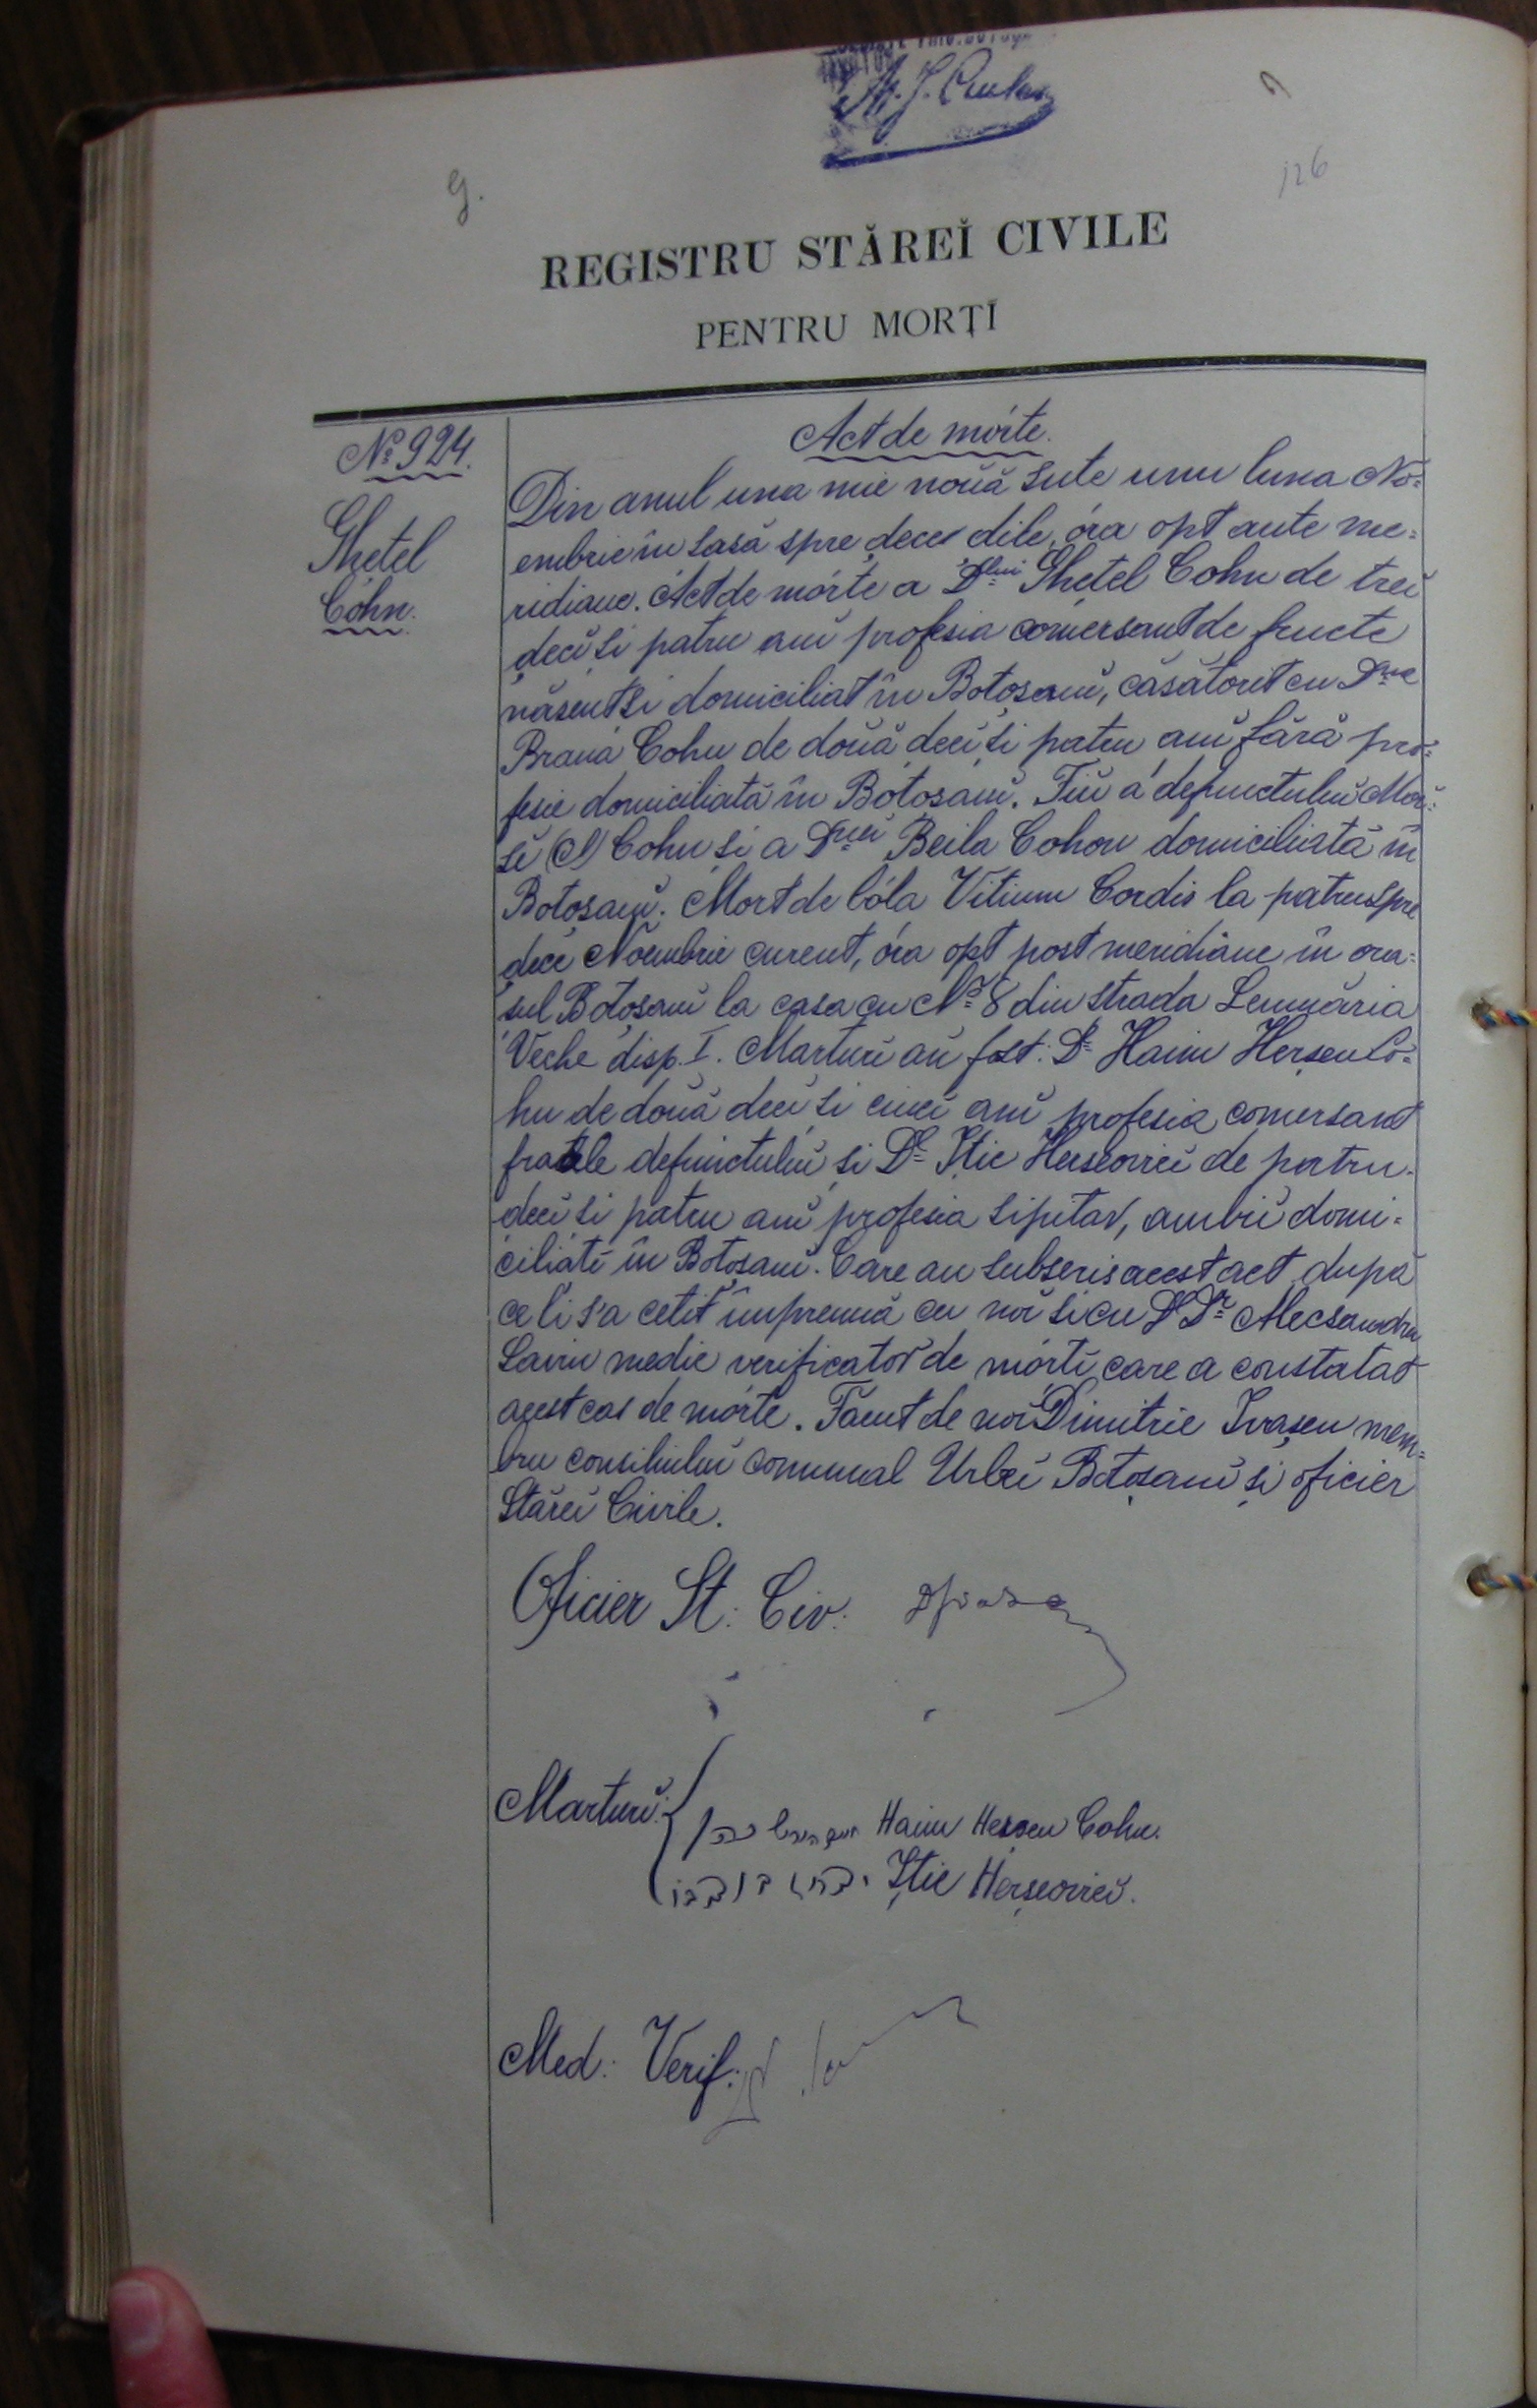 126
REGISTRU STĂREĬ CIVILE
PENTRU MORȚĬ
Nº 924.
Ghetel
Cohn.
Act de mórte.
Din anul una mie nouă sute unu luna No=
embrie în șasă spre dece dile, óra opt ante me=
ridiane. Act de mórte a Dlui Ghetel Cohn de trei
deci și patru ani profesia comersant de fructe
născut și domiciliat în Botoșani, căsătorit cu Dna
Brana Cohn de două deci și patru ani fără pro=
fesie domiciliată în Botosani. Fiu a defunctului Moi=
si Cohn și a Dnei Beila Cohon domiciliată în
Botoșani. Mort de bóla Vitium Cordis la patru spre
dece Noembrie curent, óra opt post meridiane în ora=
sul Botoșani la casa cu Nº 8 din strada Lemnăria
Veche disp. I. Marturi au fost: Dl Haim Herșcu Co=
hn de două deci și cinci ani profesia comersant
fratele defunctului și Dl Ițic Herscovici de patru
deci și patru ani profesia sipitar, ambii domi=
ciliați în Botoșani. Care au subscris acest act după
ce li s'a cetit împreună cu noi si cu D Dr Alecsandru
Savin medic verificator de morți care a constatat
acest cas de mórte. Făcut de noi Dimitrie Ivașcu mem=
bru consiliului comunal Urbei Botoșani și oficier
Stărei Civile.
Oficier St: Civ:
Marturi:
Haim Herscu Cohn.
Ițic Herșcovici.
Med: Verif: